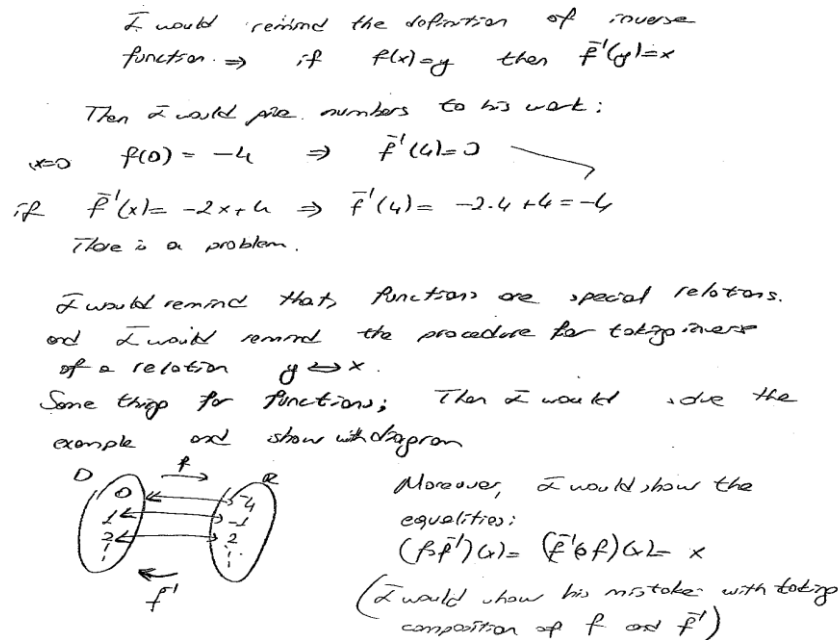 I would remind the definition of inverse
function. ⇒ if f(x)=y then f⁻¹(y)=x
Then I would give numbers to his work:
x=0 f(0) = -4 ⇒ f⁻¹(4)=0
if f⁻¹(x)= -2x+4 ⇒ f⁻¹(4)= -2.4+4=-4
There is a problem.
I would remind that, functions are special relations.
and I would remind the procedure for taking inverse
of a relation y ⇔ x.
Same thing for functions; Then I would solve the
example and show with diagram
D f R
0 -4
1 -1
2 2
f⁻¹
Moreover, I would show the
equalities:
(fof⁻¹)(x)= (f⁻¹of)(x)= x
(I would show his mistake with taking
composition of f and f⁻¹)